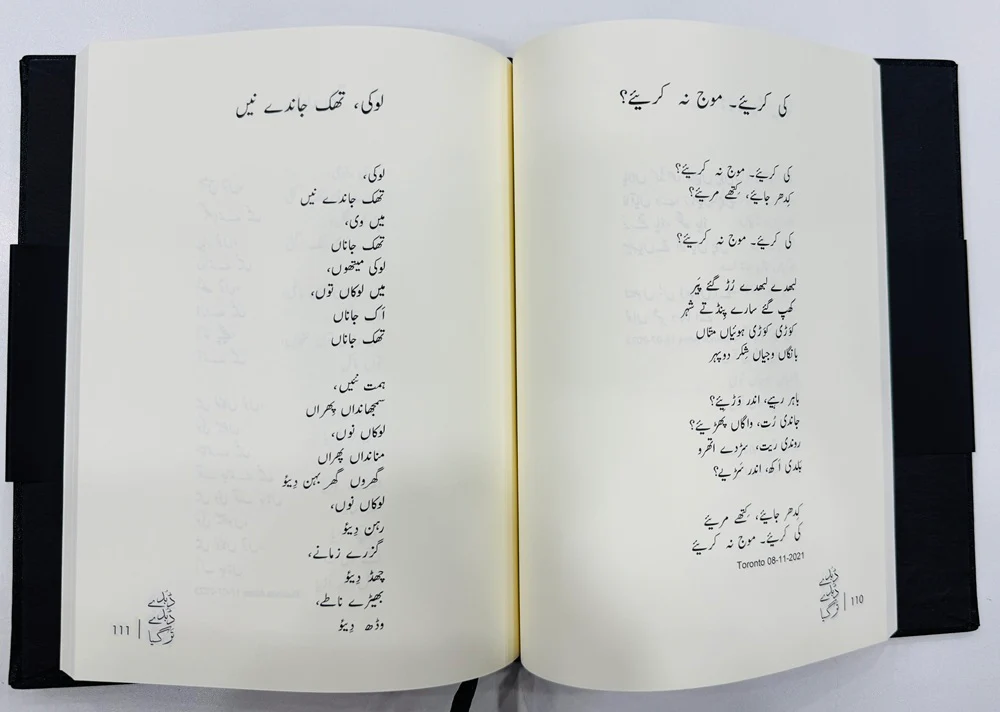 کی کریئے۔ موج نہ کریئے؟
کی کریئے۔ موج نہ کریئے؟
کِدھر جایئے، کِتھے مریئے؟
کی کریئے۔ موج نہ کریئے؟
لبھدے لبھدے رُڑ گئے پَیر
کھپ گئے سارے پِنڈتے شہر
کوڑی کوڑی ہوئیاں متاں
بانگاں وجیاں شِکر دوپہر
باہر رہیے، اندر وَڑیئے؟
جاندی رُت، واگاں پھڑیئے؟
روندی ریت، سڑدے اتھرو
بَلدی اَکھ، اندر سَڑیے؟
کِدھر جایئے، کِتھے مریئے
کی کریئے۔ موج نہ کریئے
Toronto 08-11-2021
110
لوکی، تھک جاندے نیں
لوکی،
تھک جاندے نیں
میں وی،
تھک جاناں
لوکی میتھوں،
میں لوکاں توں،
اَک جاناں
تھک جاناں
ہمت نئیں،
سمجھانداں پِھراں
لوکاں نوں،
منانداں پھراں
گھروں گھر بہن دِیئو
لوکاں نوں،
رہن دِیئو
گزرے زمانے،
چھڈ دِیئو
بھیڑے ناطے،
وڈھ دِیئو
111